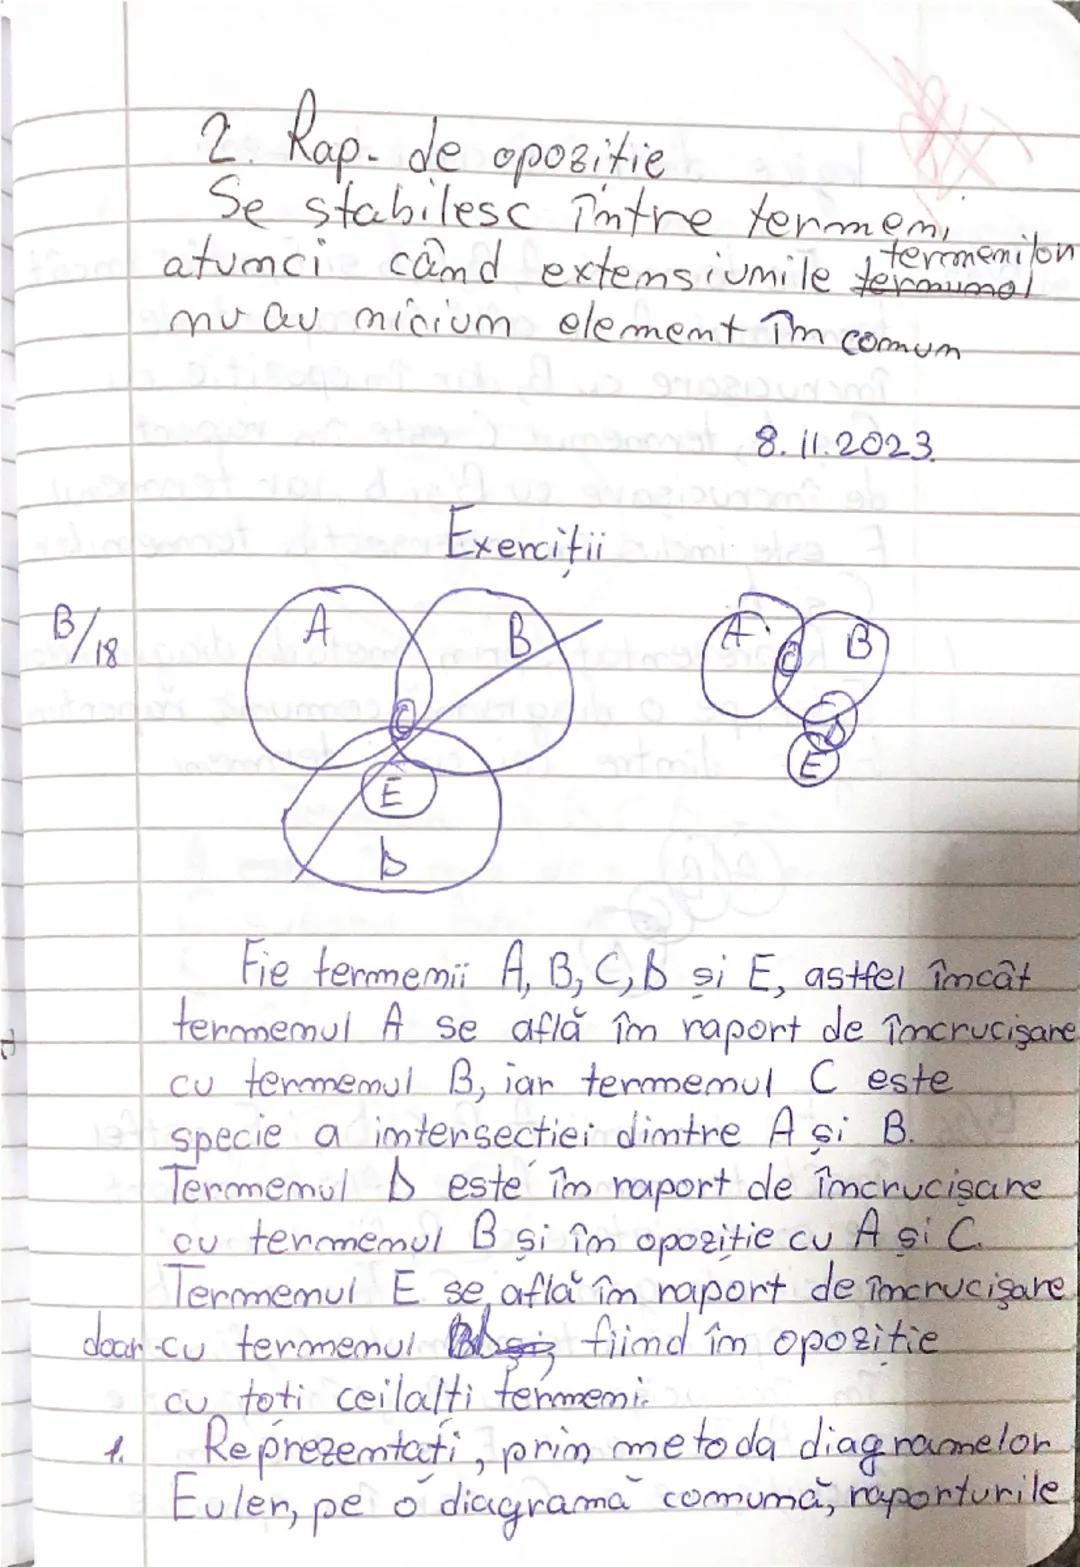 2. Rap. de opoziție
Se stabilesc între termeni
atunci când extensiunile termenilor
nu au niciun element în comun
8.11.2023
Exerciții
B/18
A B A B
C C
E D
D E
Fie termenii A, B, C, D și E, astfel încât
termenul A se află în raport de încrucișare
cu termenul B, iar termenul C este
specie a intersecției dintre A și B.
Termenul D este în raport de încrucișare
cu termenul B și în opoziție cu A și C.
Termenul E se află în raport de încrucișare
doar cu termenul D fiind în opoziție
cu toți ceilalți termeni.
1. Reprezentați, prin metoda diagramelor
Euler, pe o diagramă comună, raporturile